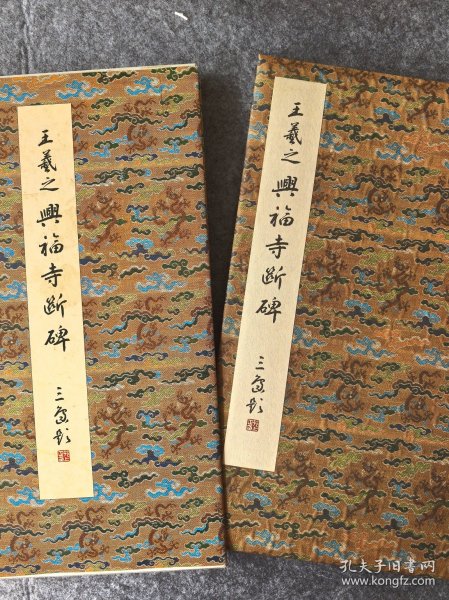 王羲之 興福寺断碑
王羲之 興福寺断碑
孔夫子旧书网
www.kongfz.com